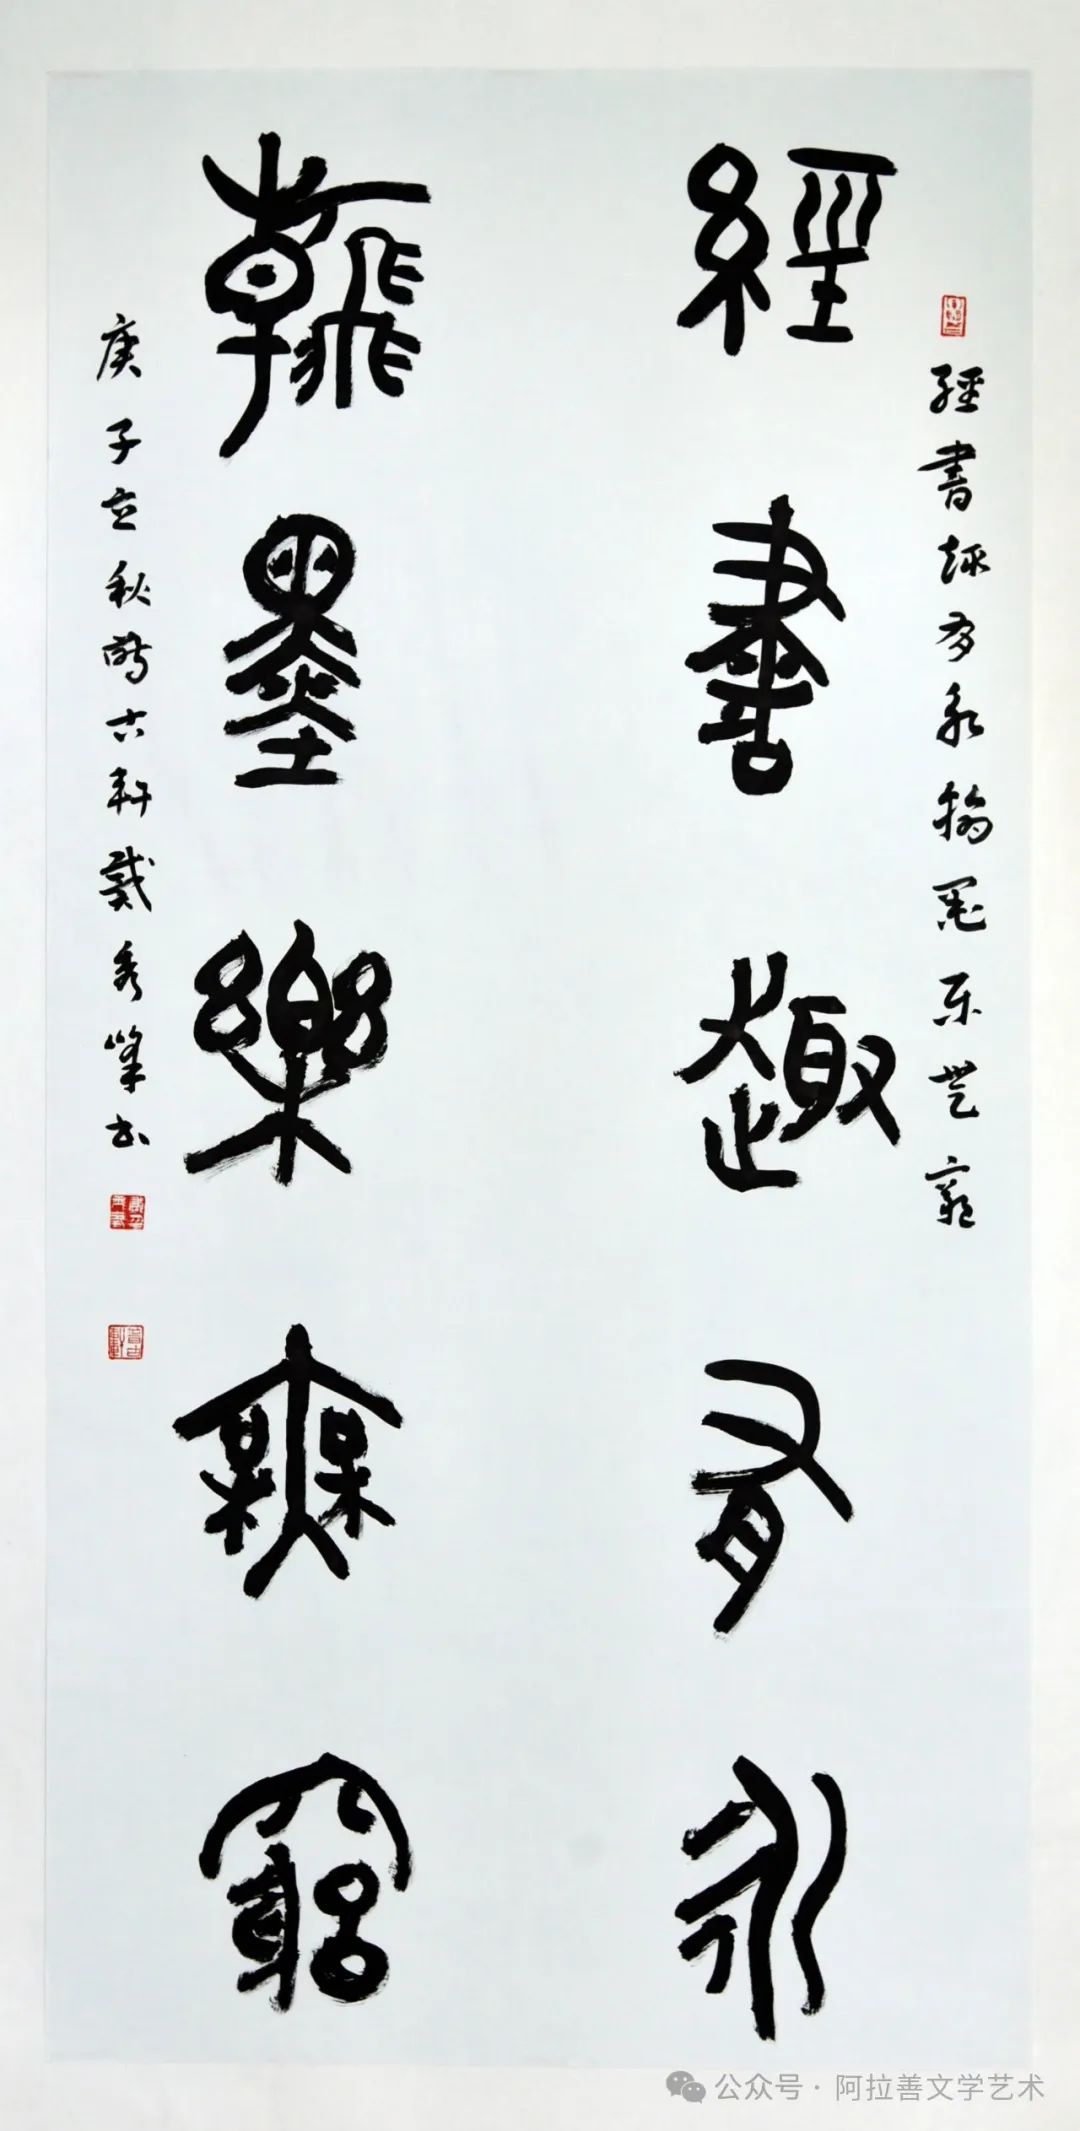 經書趣有永
翰墨樂無窮
經書趣有永翰墨樂無窮
庚子立秋時古軒戴秀峰书
公众号·阿拉善文学艺术